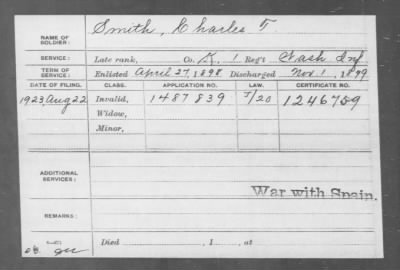 NAME OF SOLDIER: Smith, Charles F.
SERVICE: Late rank, Co. K, 1 Reg't Wash Inf.
TERM OF SERVICE: Enlisted April 27, 1898 Discharged Nov 1, 1899
DATE OF FILING. CLASS. APPLICATION NO. LAW. CERTIFICATE NO.
1923, Aug 22 Invalid, 1487839 J/20 1246759
Widow,
Minor,
ADDITIONAL SERVICES:
War with Spain.
REMARKS:
Died , 1 , at